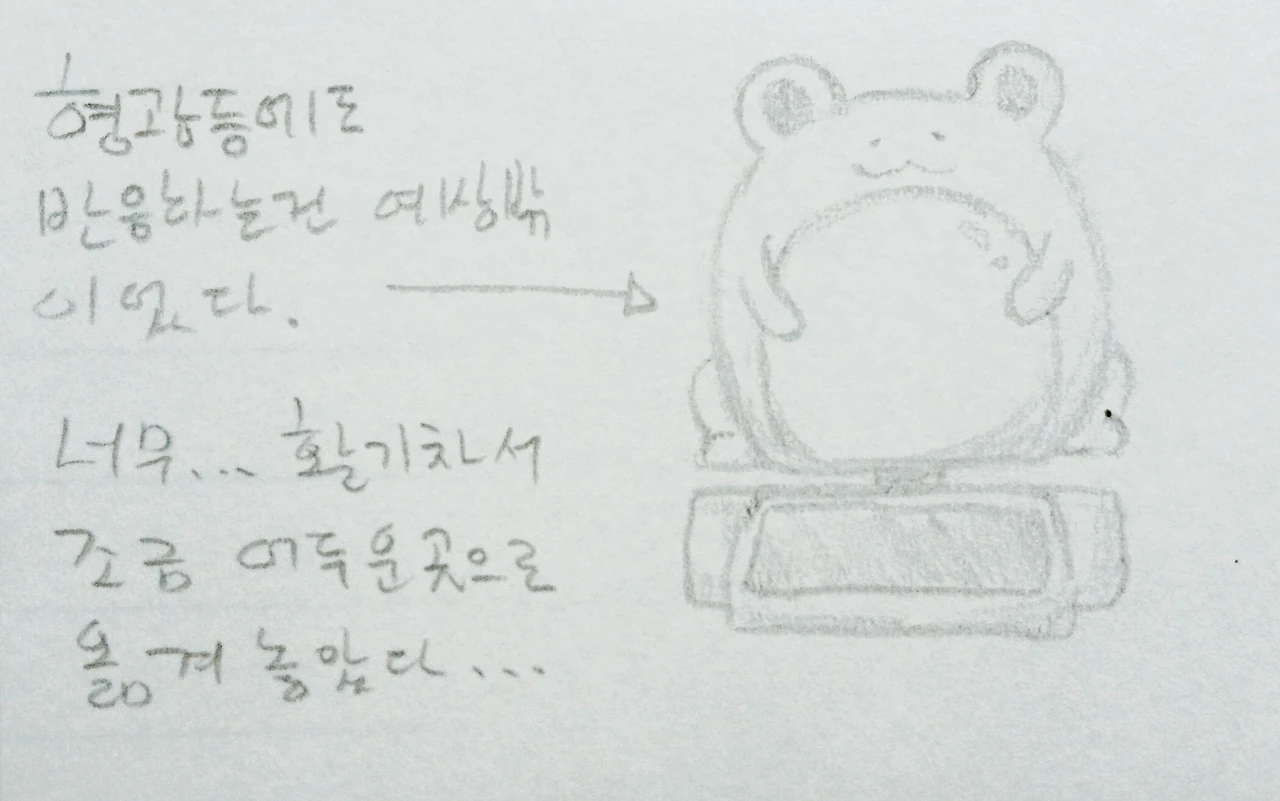 형광등에도
반응하는건 예상밖
이었다.
너무... 활기차서
조금 어두운곳으로
옮겨 놓았다...